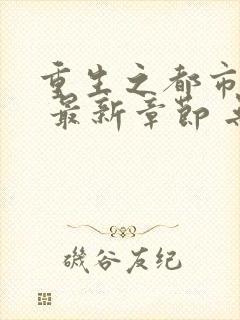 重生之都市
最新章节
磯谷友纪